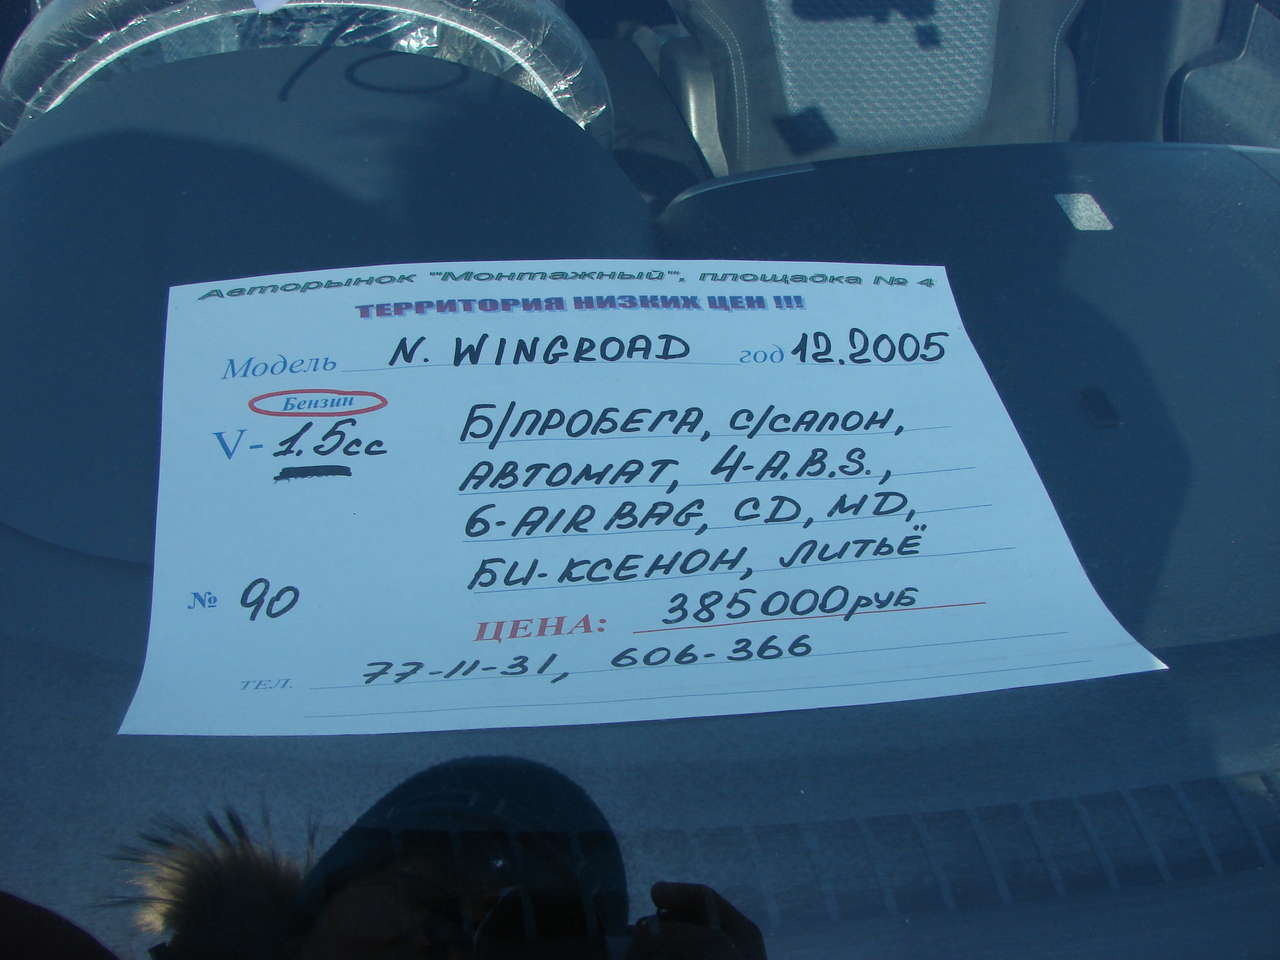 Авторынок ""Монтажный"", площадка № 4
ТЕРРИТОРИЯ НИЗКИХ ЦЕН !!!
Модель N. WINGROAD год 12.2005
Бензин
V- 1.5cc
Б/ПРОБЕГА, С/САЛОН,
АВТОМАТ, 4-A.B.S.,
6-AIR BAG, CD, MD,
БИ-КСЕНОН, ЛИТЬЁ
№ 90
ЦЕНА: 385000 руб
ТЕЛ. 77-11-31, 606-366